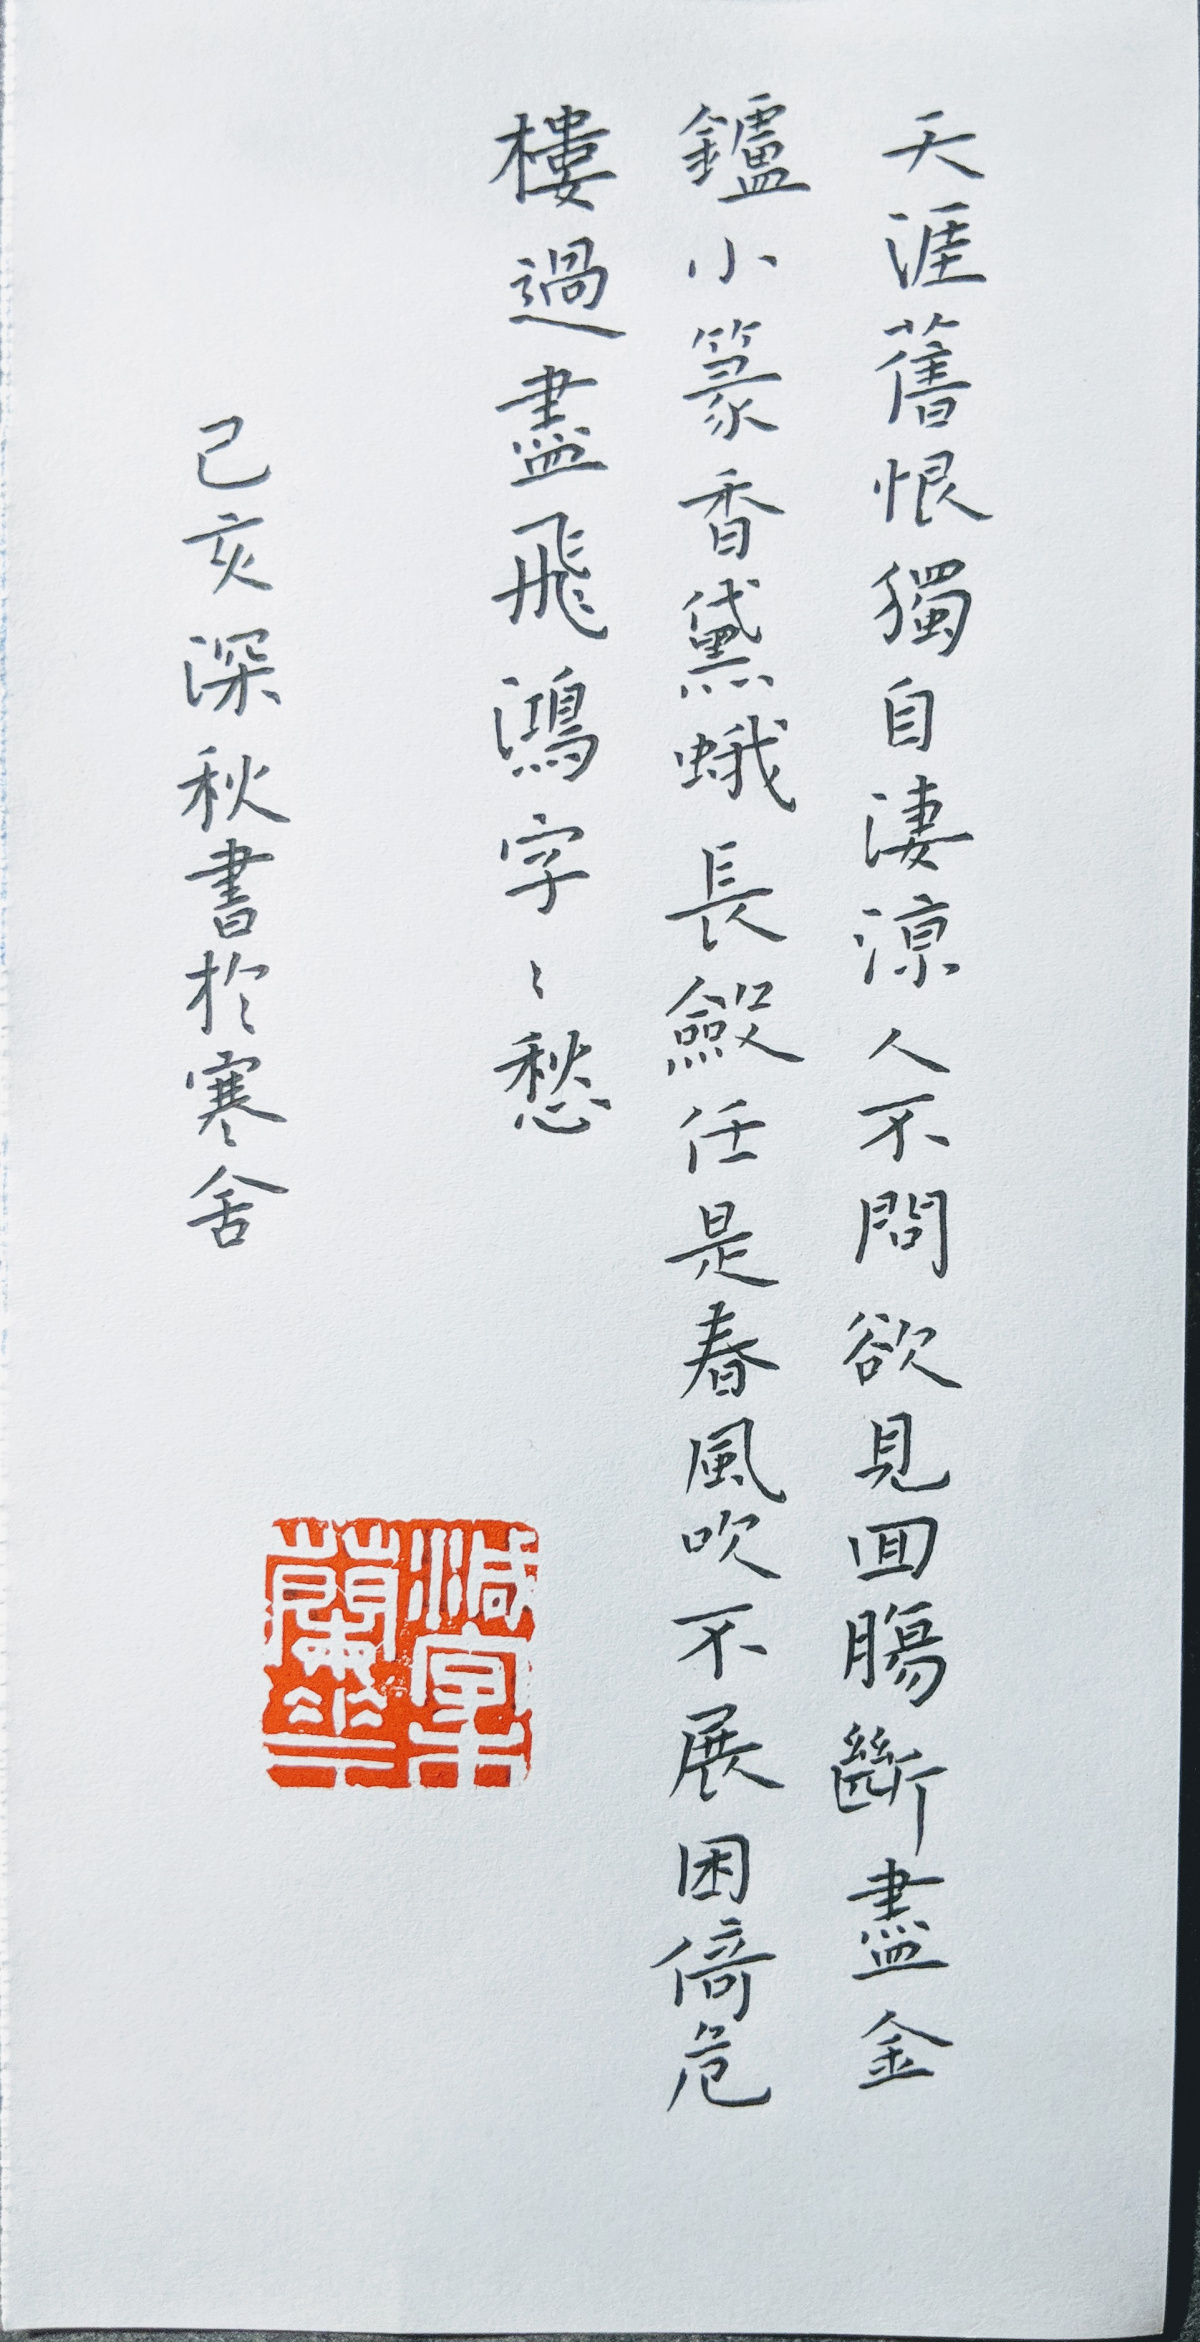 天涯舊恨獨自淒涼人不問欲見囬腸斷盡金
鑪小篆香黛蛾長斂任是春風吹不展困倚危
樓過盡飛鴻字〻愁
己亥深秋書於寒舍
減字木
蘭華